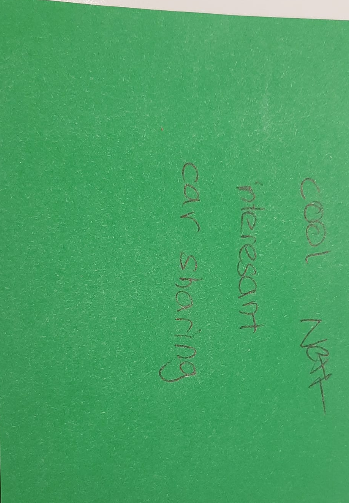 cool Nett
interesant
car sharing